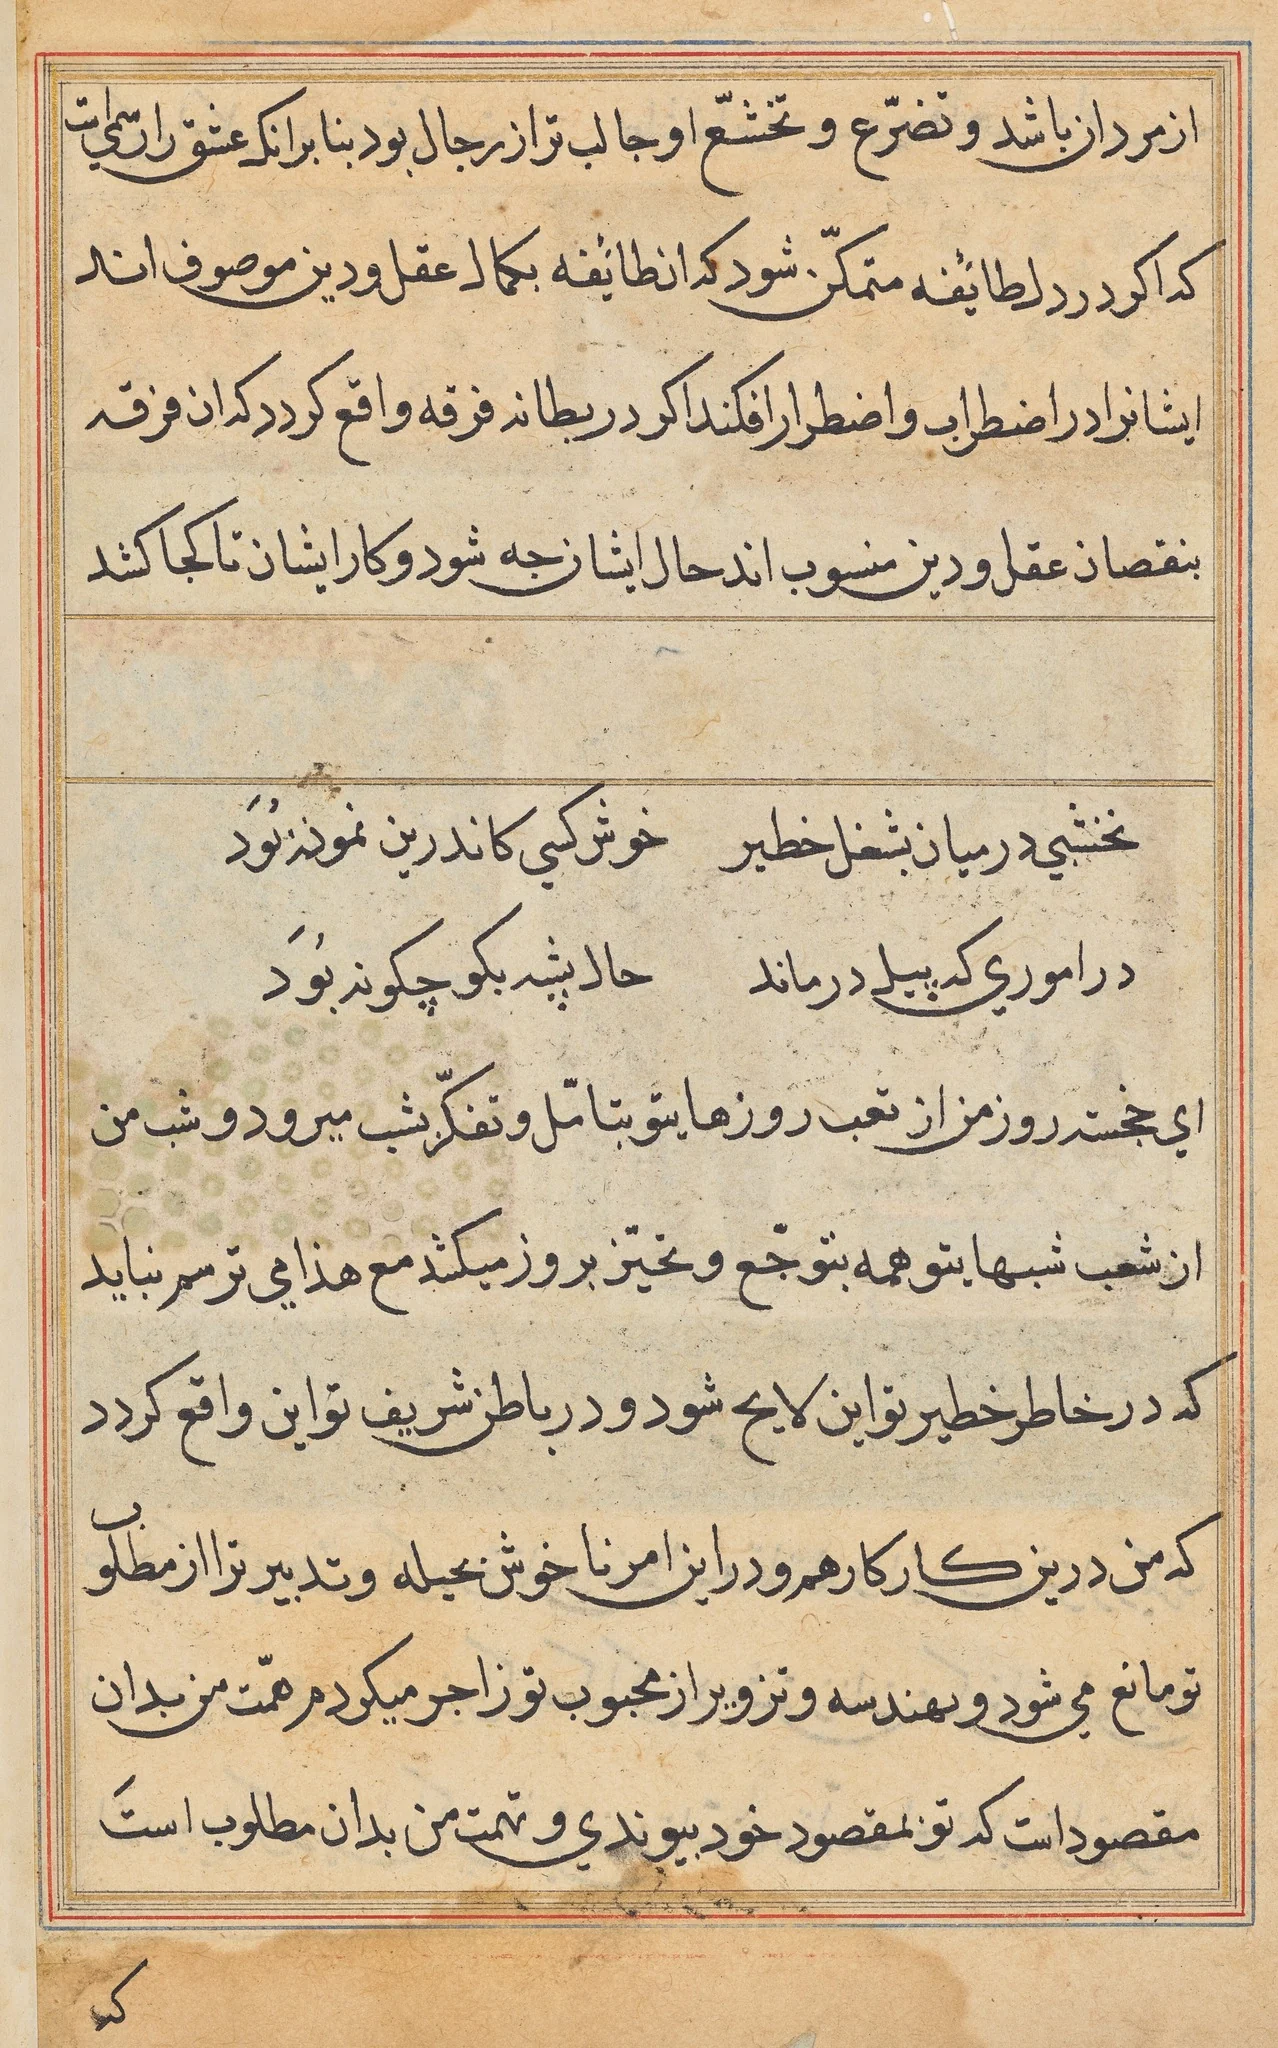 از مردان باشد و تضرّع و تخشّع او جالب تر از رجال بود بنا برانکه عشق را رسمی است
که اکر در دل طائفه متمکّن شود که ان طائفه بکمال عقل و دین موصوف اند
ایشانرا در اضطراب و اضطرار افکند اکر در بطانه فرقه واقع کردد که ان فرقه
بنقصان عقل و دین منسوب اند حال ایشان جه شود و کار ایشان تا کجا کشد
نخشبي در میان بشغل خطیر خوش کسي کاندرین نمونه بُوَد
در اموري که پیل در ماند حال پشه بکو چکونه بُوَد
اي خجسته روز من از تعب روزهای تو بتامّل و تفکّر بشب میرود و شب من
از شعب شبهای تو همه بتوجّع و تحیّز بروز میکشد مع هذا می ترسم نباید
که در خاطر خطیر تو این لایح شود و در باطن شریف تو این واقع کردد
که من درین کار کارهم و در این امر ناخوش بحیله و تدبیر ترا از مطلوب
تو مانع می شود و بهندسه و تزویر از محبوب تو زاجر میکردم همّت من بدان
مقصود است که تو بمقصود خود بپیوندي و نهمت من بدان مطلوب استَ
که